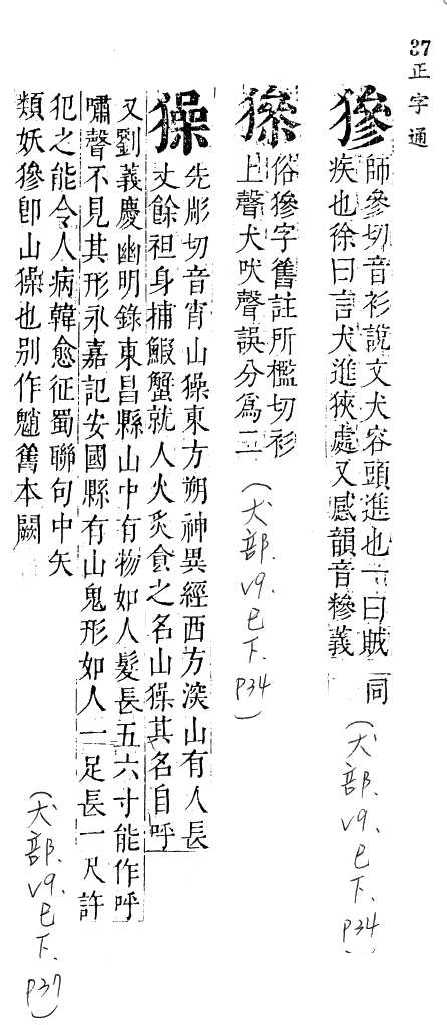 37正字通
獊
師參切音衫說文犬容頭進也一曰賊
疾也徐曰言犬進狹處又感韻音糝義同
(犬部.v9.巳下.p34)
俗獊字舊註所檻切衫
上聲犬吠聲誤分爲二
(犬部.v9.巳下.p34)
𤢖
先彫切音宵山𤢖東方朔神異經西方深山有人長
丈餘袒身捕鰕蟹就人火炙食之名山𤢖其名自呼
又劉義慶幽明錄東昌縣山中有物如人髮長五六寸能作呼
嘯聲不見其形永嘉記安國縣有山鬼形如人一足長一尺許
犯之能令人病韓愈征蜀聯句中矢
類妖獊卽山𤢖也別作魈舊本闕
(犬部.v9.巳下.p37)